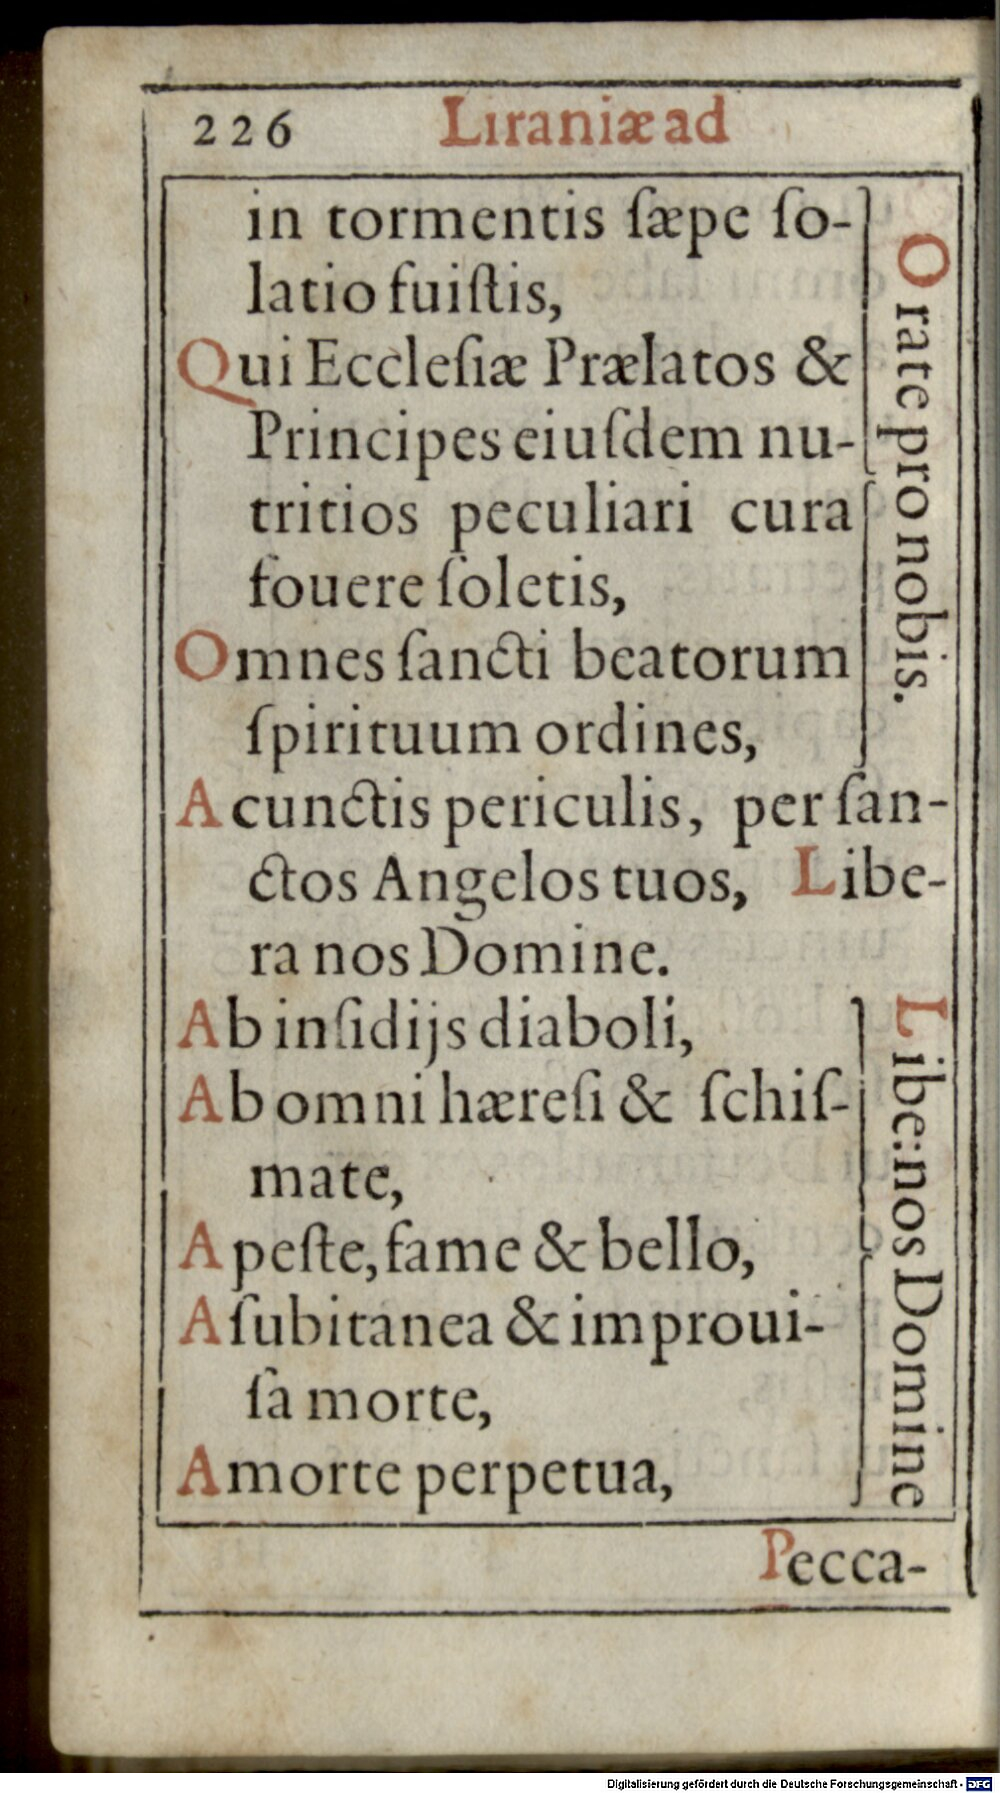 226 Litaniæ ad
in tormentis ſæpe ſo-
latio fuiſtis,
Qui Eccleſiæ Prælatos &
Principes eiuſdem nu-
tritios peculiari cura
fouere ſoletis,
Omnes ſancti beatorum
ſpirituum ordines,
Orate pro nobis.
A cunctis periculis, per ſan-
ctos Angelos tuos, Libe-
ra nos Domine.
Ab inſidijs diaboli,
Ab omni hæreſi & ſchiſ-
mate,
A peſte, fame & bello,
A ſubitanea & improui-
ſa morte,
A morte perpetua,
Libe: nos Domine
Pecca-
Digitalisierung gefördert durch die Deutsche Forschungsgemeinschaft - DFG